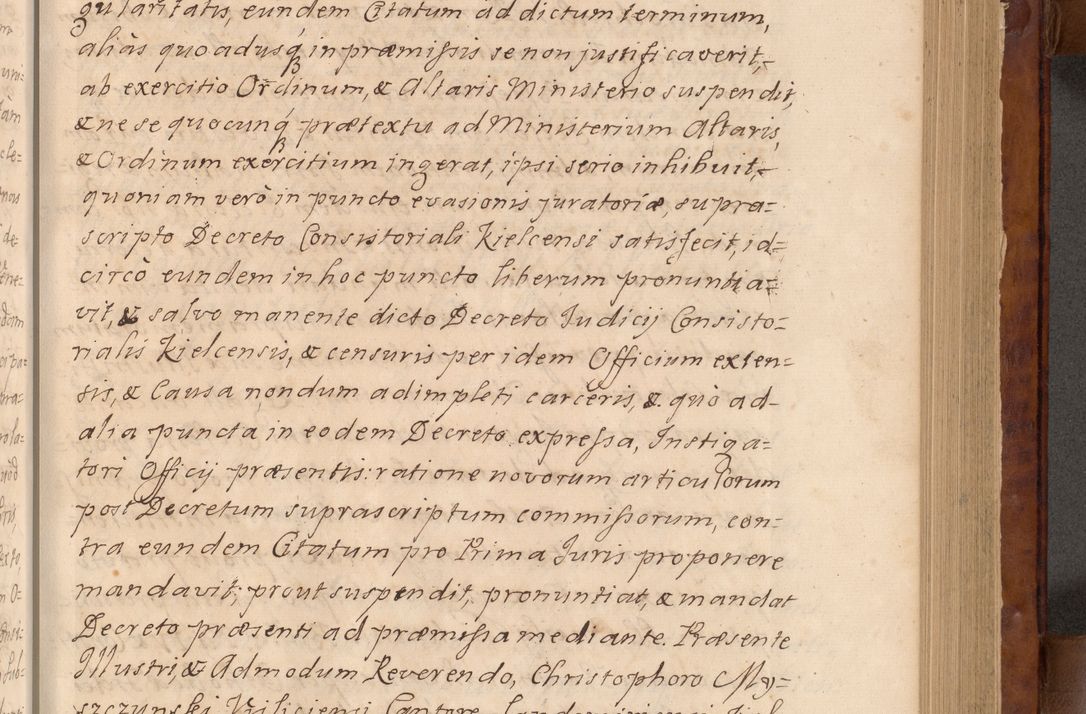 gularitatis, eundem Citatum ad dictum terminum,
aliàs quoadusq́ in præmissis se non justificaverit,
ab exercitio Ordinum, & Altaris Ministerio suspendit,
& ne se quocunq́ prætextu ad Ministerium Altaris,
& Ordinum exercitium ingerat, ipsi serio inhibuit,
quoniam verò in puncto evasionis juratoriæ, supra=
scripto Decreto Consistoriali Kielcensi satisfecit, id=
circò eundem in hoc puncto liberum pronuntia=
vit, & salvo manente dicto Decreto Judicij Consisto=
rialis Kielcensis, & censuris per idem Officium exten=
sis, & Causa nondum adimpleti carceris, & quò ad
alia puncta in eodem Decreto expressa, Instiga=
tori Officij præsentis: ratione novorum articulorum
post Decretum suprascriptum commissorum, con=
tra eundem Citatum pro Prima Juris proponere
mandavit; prout suspendit, pronuntiat, & mandat
Decreto præsenti ad præmissa mediante. Præsente
Illustri, & Admodum Reverendo, Christophoro My=
szczynski Kiliciensi Cantore